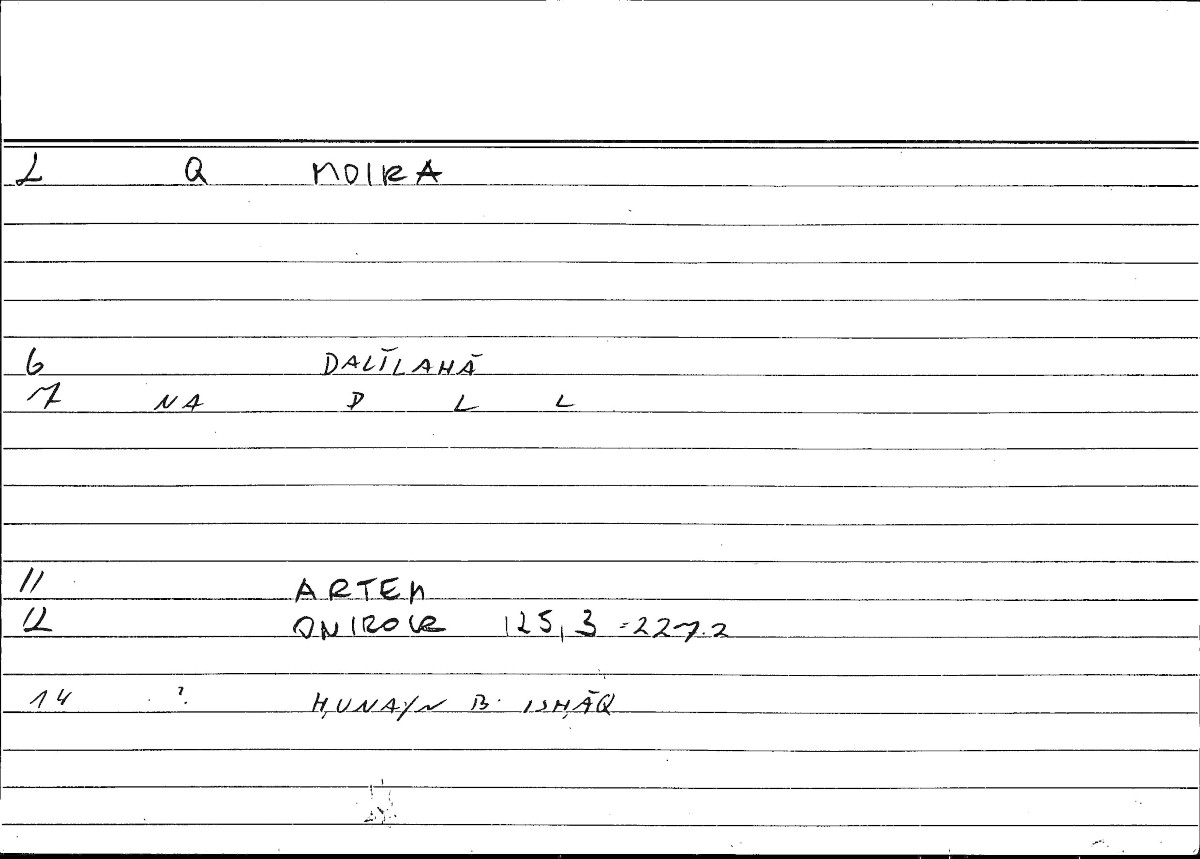 2 Q MOIRA
6 DALĪLAHĀ
7 NA D L L
11 ARTEM
12 ONIROKR 125,3 =227.2
14 ? ḤUNAYN B. ISḤĀQ